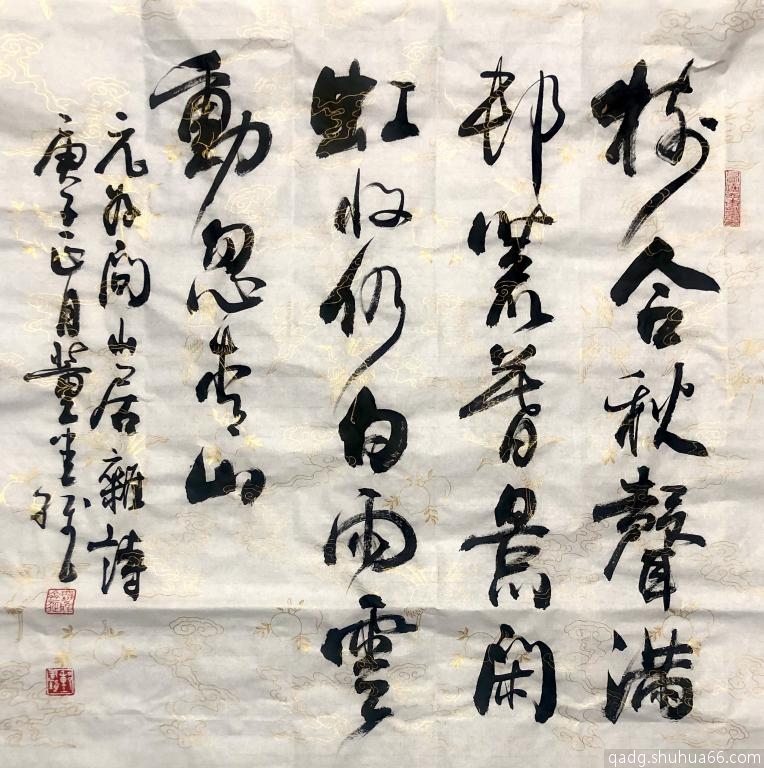 樹合秋聲滿
邨荒暮景閑
虹收仍白雨雲
動忽青山
元好问山居雜詩
庚子正月董
qadg.shuhua66.com